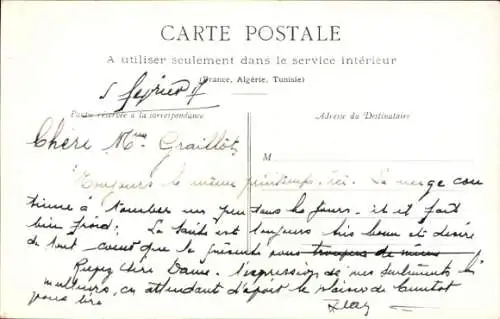 CARTE POSTALE
A utiliser seulement dans le service intérieur
(France, Algérie, Tunisie)
5 février
Partie réservée à la correspondance
Adresse du Destinataire
Chère Mme Graillot
M
Toujours le même printemps ici. La neige con
tinue à tomber un peu tous les jours, et il fait
bien froid. La santé est toujours très bonne et désire
de tout cœur que la présente vous trouve de même
Recevez chère Dame, l'expression de nos sentiments les
meilleurs, en attendant d'avoir le plaisir de bientôt
vous lire